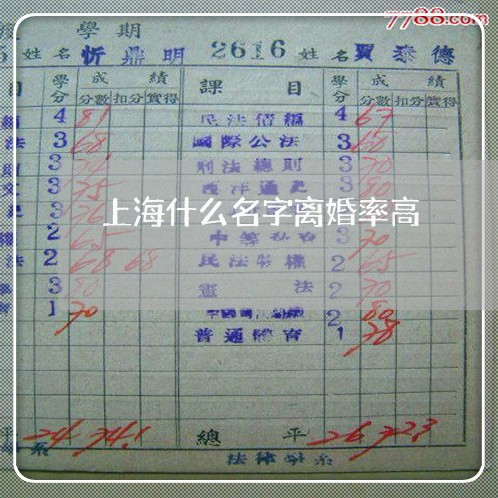 7788.com
學期
姓名 忻鼎明 2616 姓名 賈泰德
目 學分 成績 課目 學分 成績
分數 扣分 實得 分數 扣分 實得
4 81 民法債編 4 67
法 3 68 國際公法 3 60
3 刑法總則 3 70
3 75 西洋通史 3 80
3
上海什么名字离婚率高
2 65 3 70
法 2 68 68 民法物權 2 65
3 80 憲法 2 70
1 70 2 80
普通體育 1 78
平 24 74.1 總平 26 72.3
系 法律學系